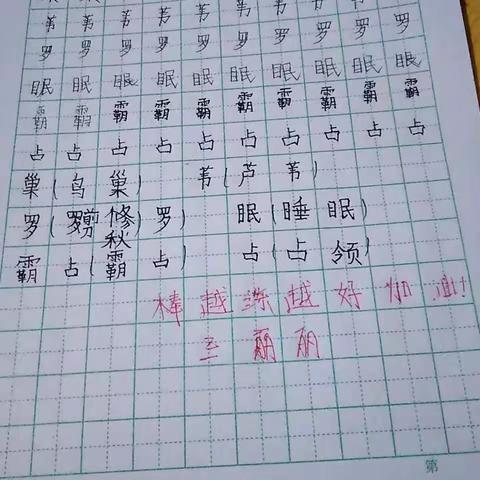 苇 苇 苇 苇 苇 苇 苇 苇
罗 罗 罗 罗 罗 罗 罗 罗 罗 罗
眠 眠 眠 眠 眠 眠 眠 眠 眠 眠
霸 霸 霸 霸 霸 霸 霸 霸 霸 霸
占 占 占 占 占 占 占 占 占 占
巢(鸟巢) 苇(芦苇)
罗(剪修秋罗) 眠(睡眠)
霸占(霸占) 占(占领)
棒越练越好加油!
丽丽
第